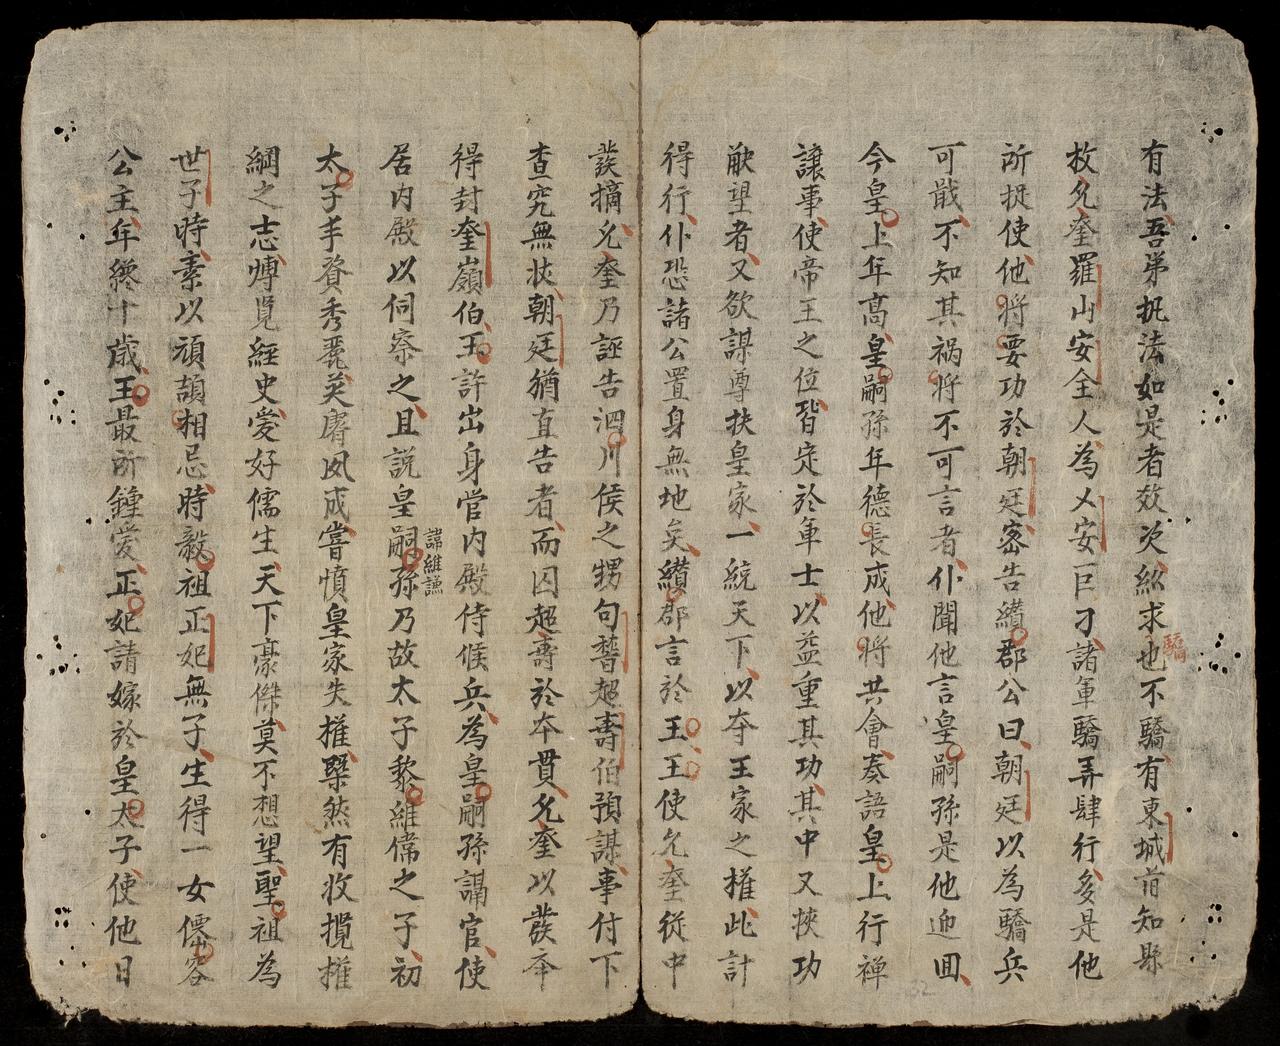 有法吾弟執法如是者效次紛求也不驕有東城首知縣
驕
枚允奎羅山安全人為乂安巨刁諸軍驕弄肆行多是他
所捉使他將要功於朝廷密告纘郡公曰朝廷以為驕兵
可戢不知其禍將不可言者仆聞他言皇嗣孫是他迎囬
今皇上年高皇嗣孫年德長成他將共會奏語皇上行禅
讓事使帝王之位皆定於軍士以益重其功其中又挾功
觖望者又欲謀尊扶皇家一統天下以夺王家之權此計
得行仆恐諸公置身無地矣纘郡言於王王使允奎従中
發摘允奎乃誣告泗川侯之甥句㨗超壽伯預謀事付下
查究無狀朝廷猶直告者而囚超壽於本貫允奎以發奸
得封奎嶺伯王許出身官内殿侍候兵為皇嗣孫謁官使
居内殿以伺察之且説皇嗣孫乃故太子黎維偉之子初
諱維謙
太子手資秀麗英睿夙成嘗憤皇家失權槩然有收攬權
綱之志博覽經史愛好儒生天下豪傑莫不想望聖祖為
世子時素以頑頡相忌時毅祖正妃無子生得一女僊容
公主年纔十歳王最所鍾愛正妃請嫁於皇太子使他日